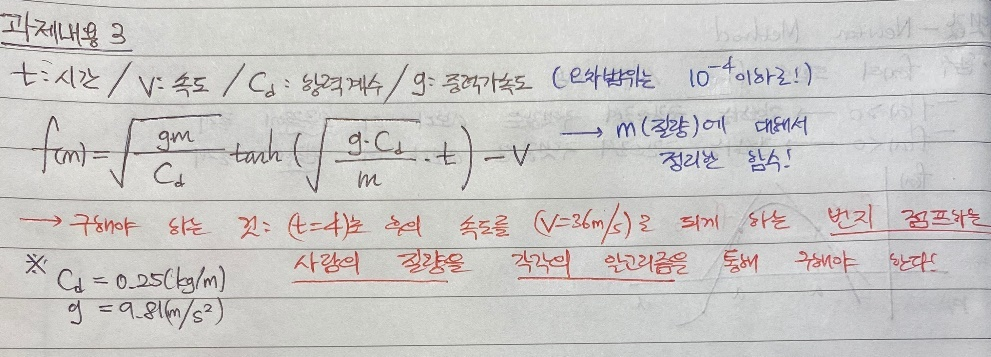 과제내용 3
t: 시간 / V: 속도 / Cd : 항력계수 / g: 중력가속도 (오차범위는 10^-4 이하로!)
f(m) = √(gm/Cd) tanh (√(g·Cd/m) · t) - V → m(질량)에 대해서
정리한 함수!
→ 구해야 하는 것: (t=4)초 후의 속도를 (V=36m/s)로 되게 하는 번지 점프하는
※ 사람의 질량을 각각의 알고리즘을 통해 구해야 한다!
Cd = 0.25(kg/m)
g = 9.81(m/s²)